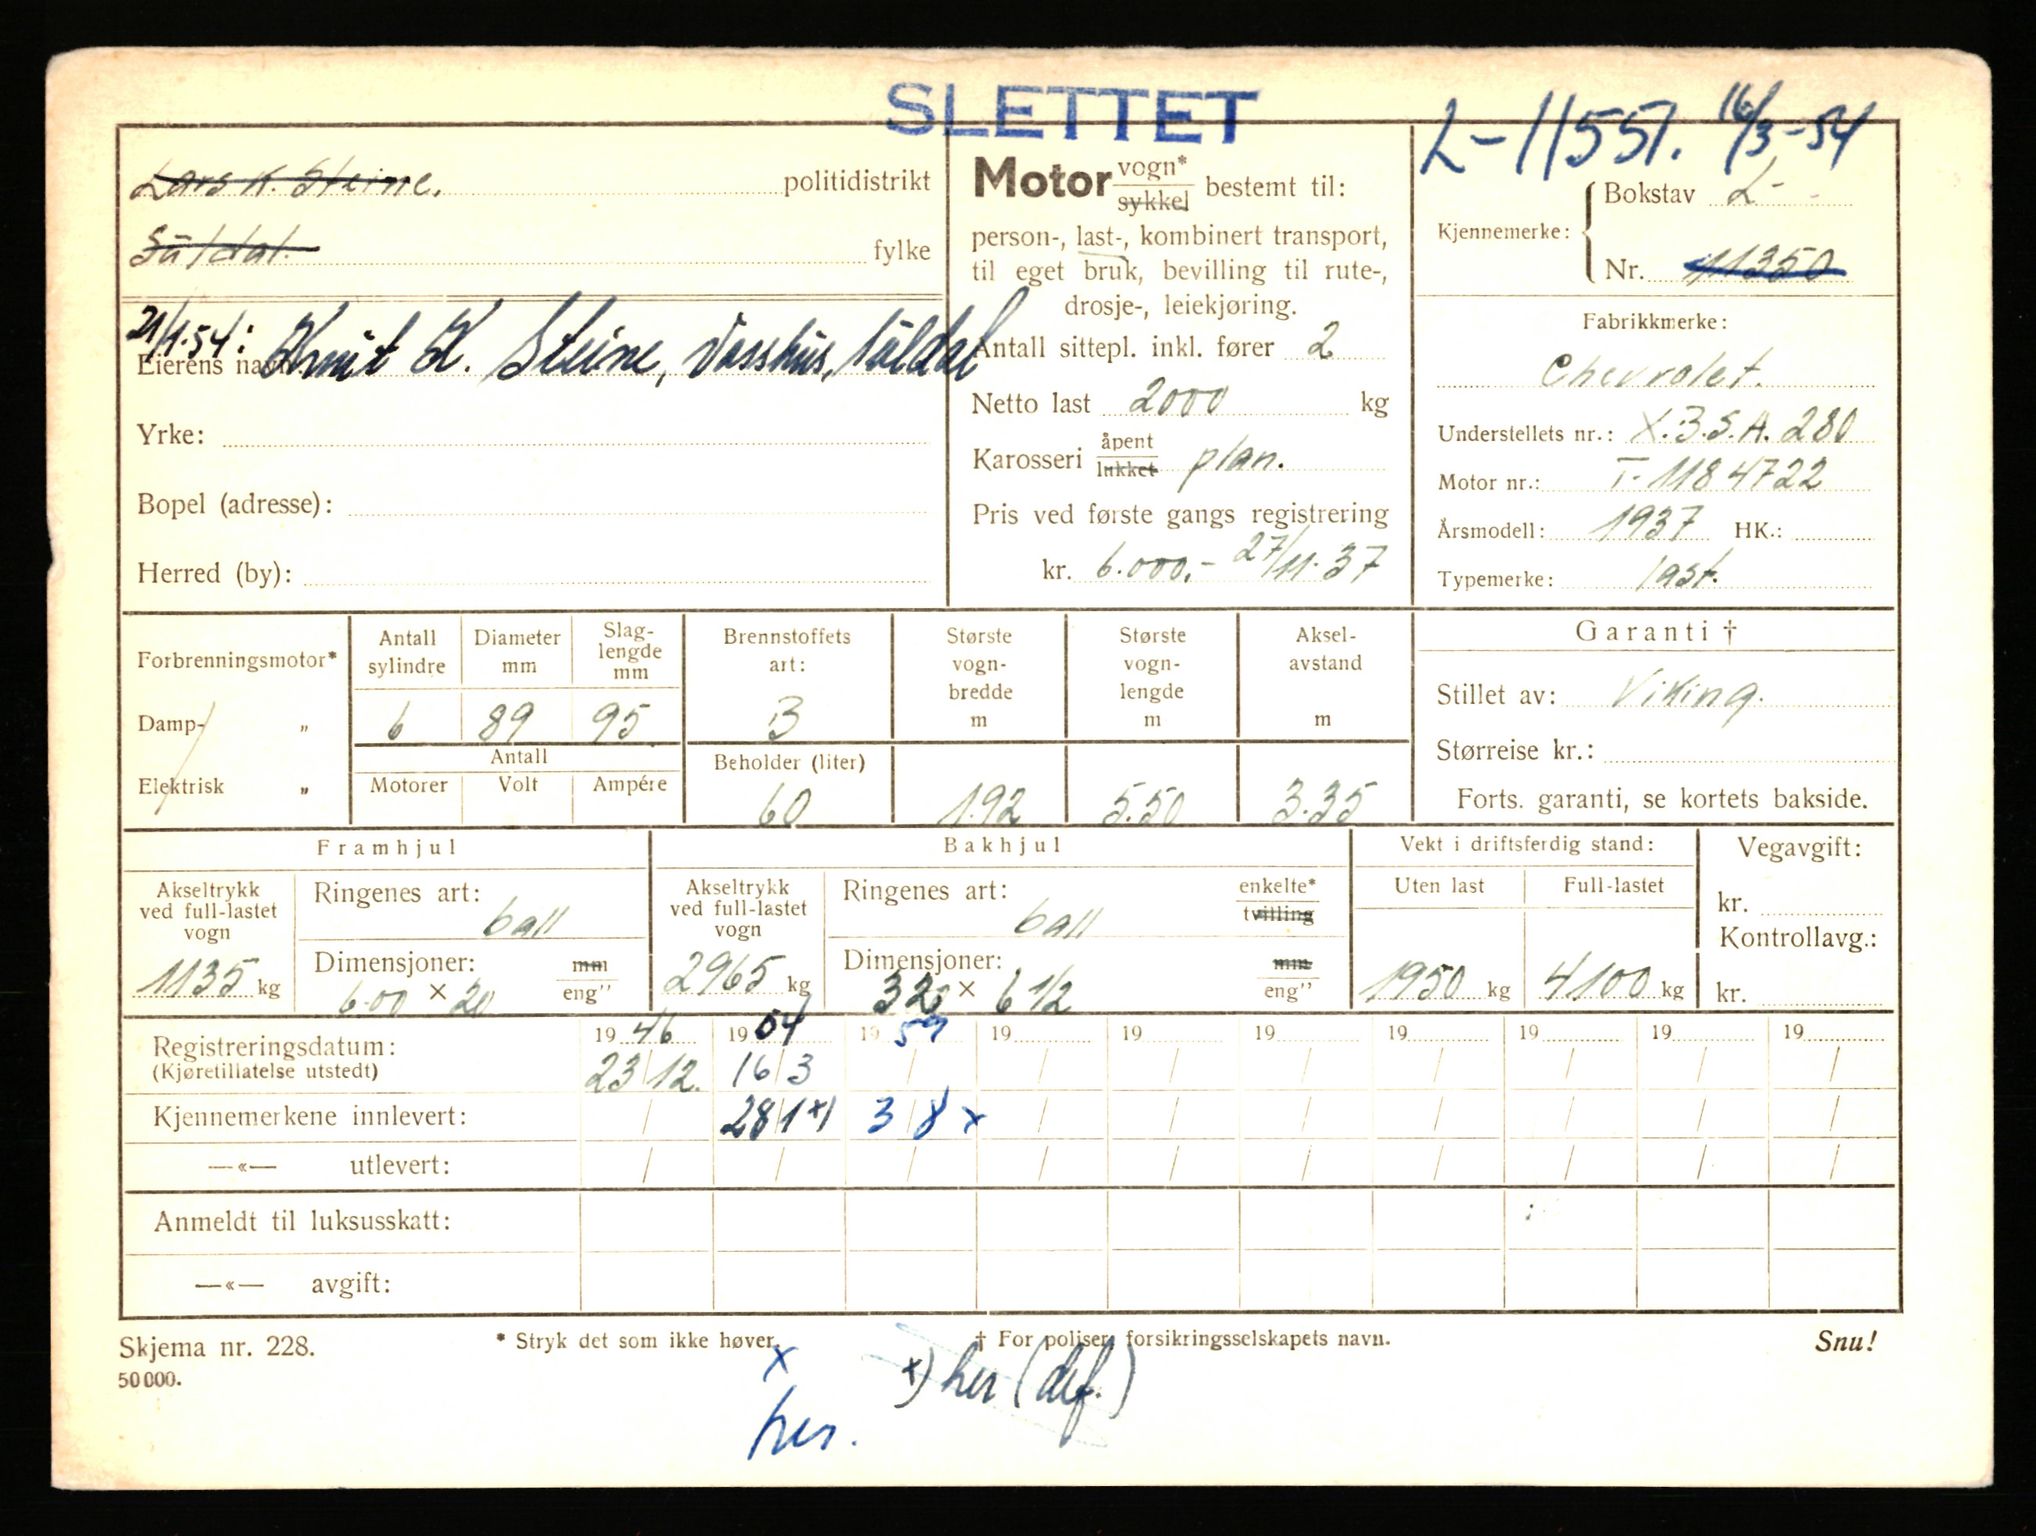 SLETTET
L-11551. 16/3-54
Lars K. Steine. politidistrikt
Suldal. fylke
21/1.54: Knut K. Steine, Vasshus, Suldal
Eierens navn
Yrke:
Bopel (adresse):
Herred (by):
Motor vogn* / sykkel bestemt til:
person-, last-, kombinert transport,
til eget bruk, bevilling til rute-,
drosje-, leiekjøring.
Antall sittepl. inkl. fører 2
Netto last 2000 kg
Karosseri åpent / lukket plan.
Pris ved første gangs registrering
kr. 6.000,- 27/11.37
Kjennemerke: { Bokstav L-
Nr. 11350
Fabrikkmerke:
Chevrolet.
Understellets nr.: X.3.S.A. 280
Motor nr.: T-1184722
Årsmodell: 1937 HK.:
Typemerke: last.
Forbrenningsmotor*
Damp- „
Elektrisk „
Antall sylindre 6
Diameter mm 89
Slag-lengde mm 95
Antall
Motorer Volt Ampére
Brennstoffets art: B
Beholder (liter) 60
Største vogn-bredde m 1.92
Største vogn-lengde m 5.50
Aksel-avstand m 3.35
Garanti †
Stillet av: Viking.
Størreise kr.:
Forts. garanti, se kortets bakside.
Framhjul
Akseltrykk ved full-lastet vogn 1135 kg
Ringenes art: ball
Dimensjoner: 6.00 × 20 mm / eng"
Bakhjul
Akseltrykk ved full-lastet vogn 2965 kg
Ringenes art: ball enkelte* / tvilling
Dimensjoner: 32 × 6 1/2 mm / eng"
Vekt i driftsferdig stand:
Uten last 1950 kg
Full-lastet 4100 kg
Vegavgift:
kr.
Kontrollavg.:
kr.
19 46 19 54 19 59 19 19 19 19 19 19 19
Registreringsdatum: 23/12. 16/3
(Kjøretillatelse utstedt)
Kjennemerkene innlevert: 28/1 x) 3/8 x
—«— utlevert:
Anmeldt til luksusskatt:
—«— avgift:
Skjema nr. 228. * Stryk det som ikke høver. † For poliser, forsikringsselskapets navn. Snu!
50 000.
x x) her (def.)
her.